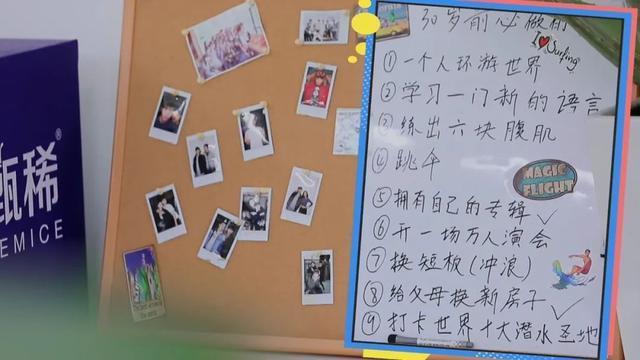 30岁前必做的
I ♥ Surfing
①一个人环游世界
②学习一门新的语言
③练出六块腹肌
④跳伞
MAGIC
FLIGHT
⑤拥有自己的专辑✓
⑥开一场万人演会
⑦换短板(冲浪)
⑧给父母换新房子✓
⑨打卡世界十大潜水圣地
甄稀®
EMICE